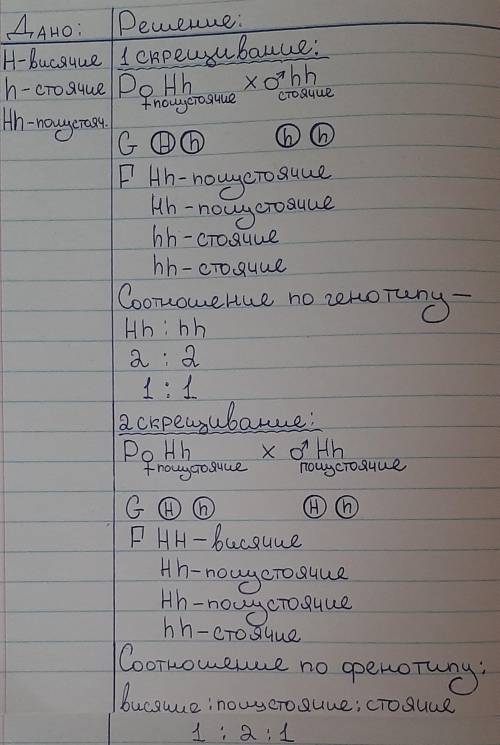 Дано:
Решение:
H-висячие
h-стоячие
Hh-полустояч.
1 скрещивание:
P ♀ Hh x ♂ hh
полустоячие стоячие
G H h h h
F Hh-полустоячие
Hh-полустоячие
hh-стоячие
hh-стоячие
Соотношение по генотипу-
Hh : hh
2 : 2
1 : 1
2 скрещивание:
P ♀ Hh x ♂ Hh
полустоячие полустоячие
G H h H h
F HH-висячие
Hh-полустоячие
Hh-полустоячие
hh-стоячие
Соотношение по фенотипу:
висячие:полустоячие:стоячие
1 : 2 : 1